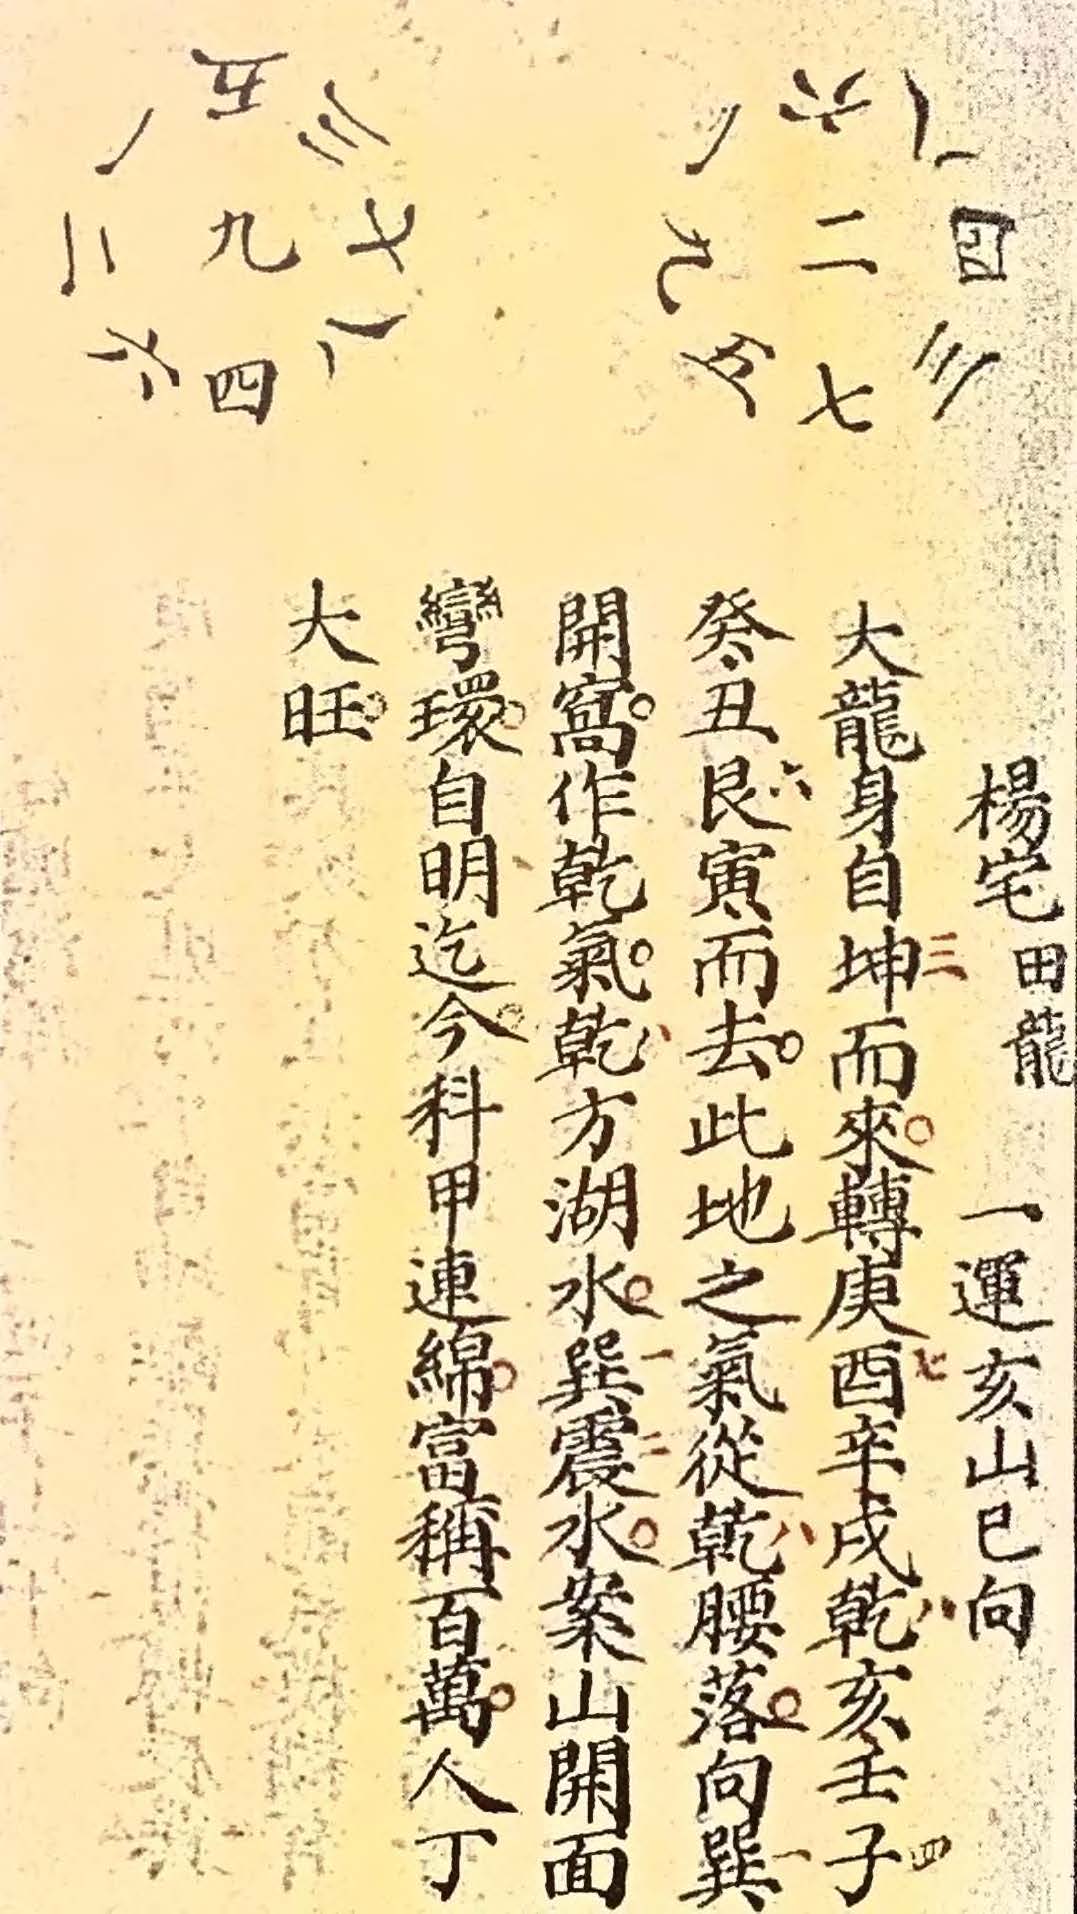 楊宅田龍 一運亥山巳向
大龍身自坤三而來轉庚酉七辛戌乾八亥壬子四
癸丑艮六寅而去此地之氣從乾八腰落向巽一
開窩作乾氣乾八方湖水巽一震二水案山開面
彎環自明迄今科甲連綿富稱百萬人丁
大旺
八 六 一
四 二 九
三 七 五
三 五 一
七 九 二
八 四 六